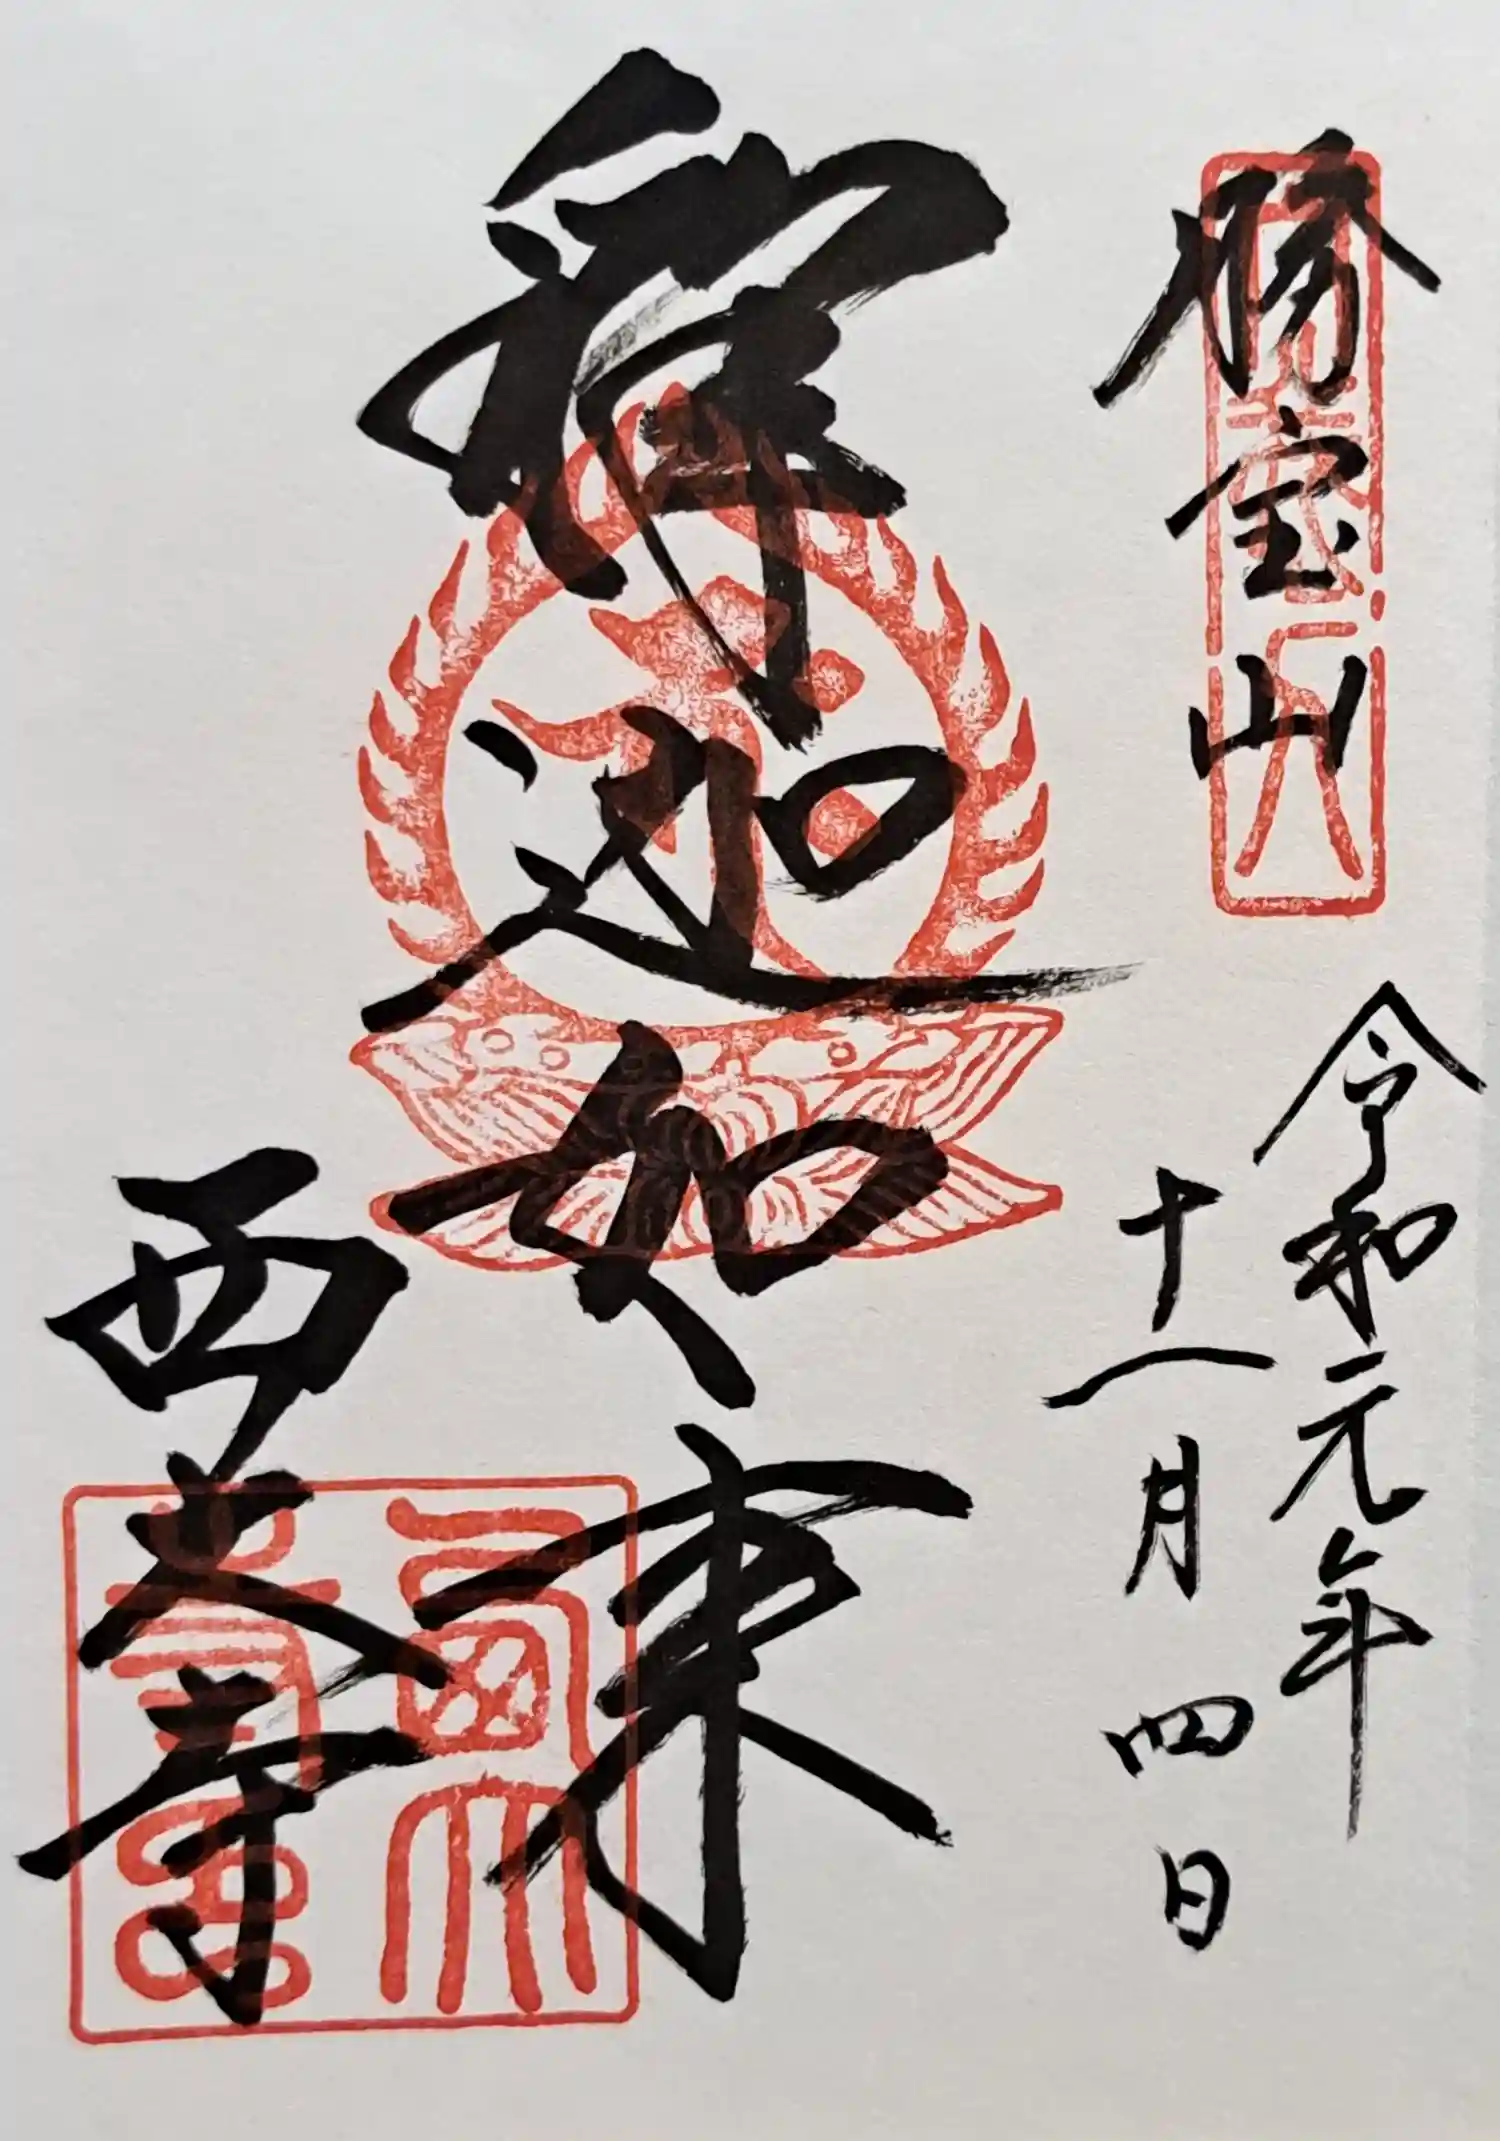 勝宝山
令和元年
十一月四日
釈迦如来
西大寺